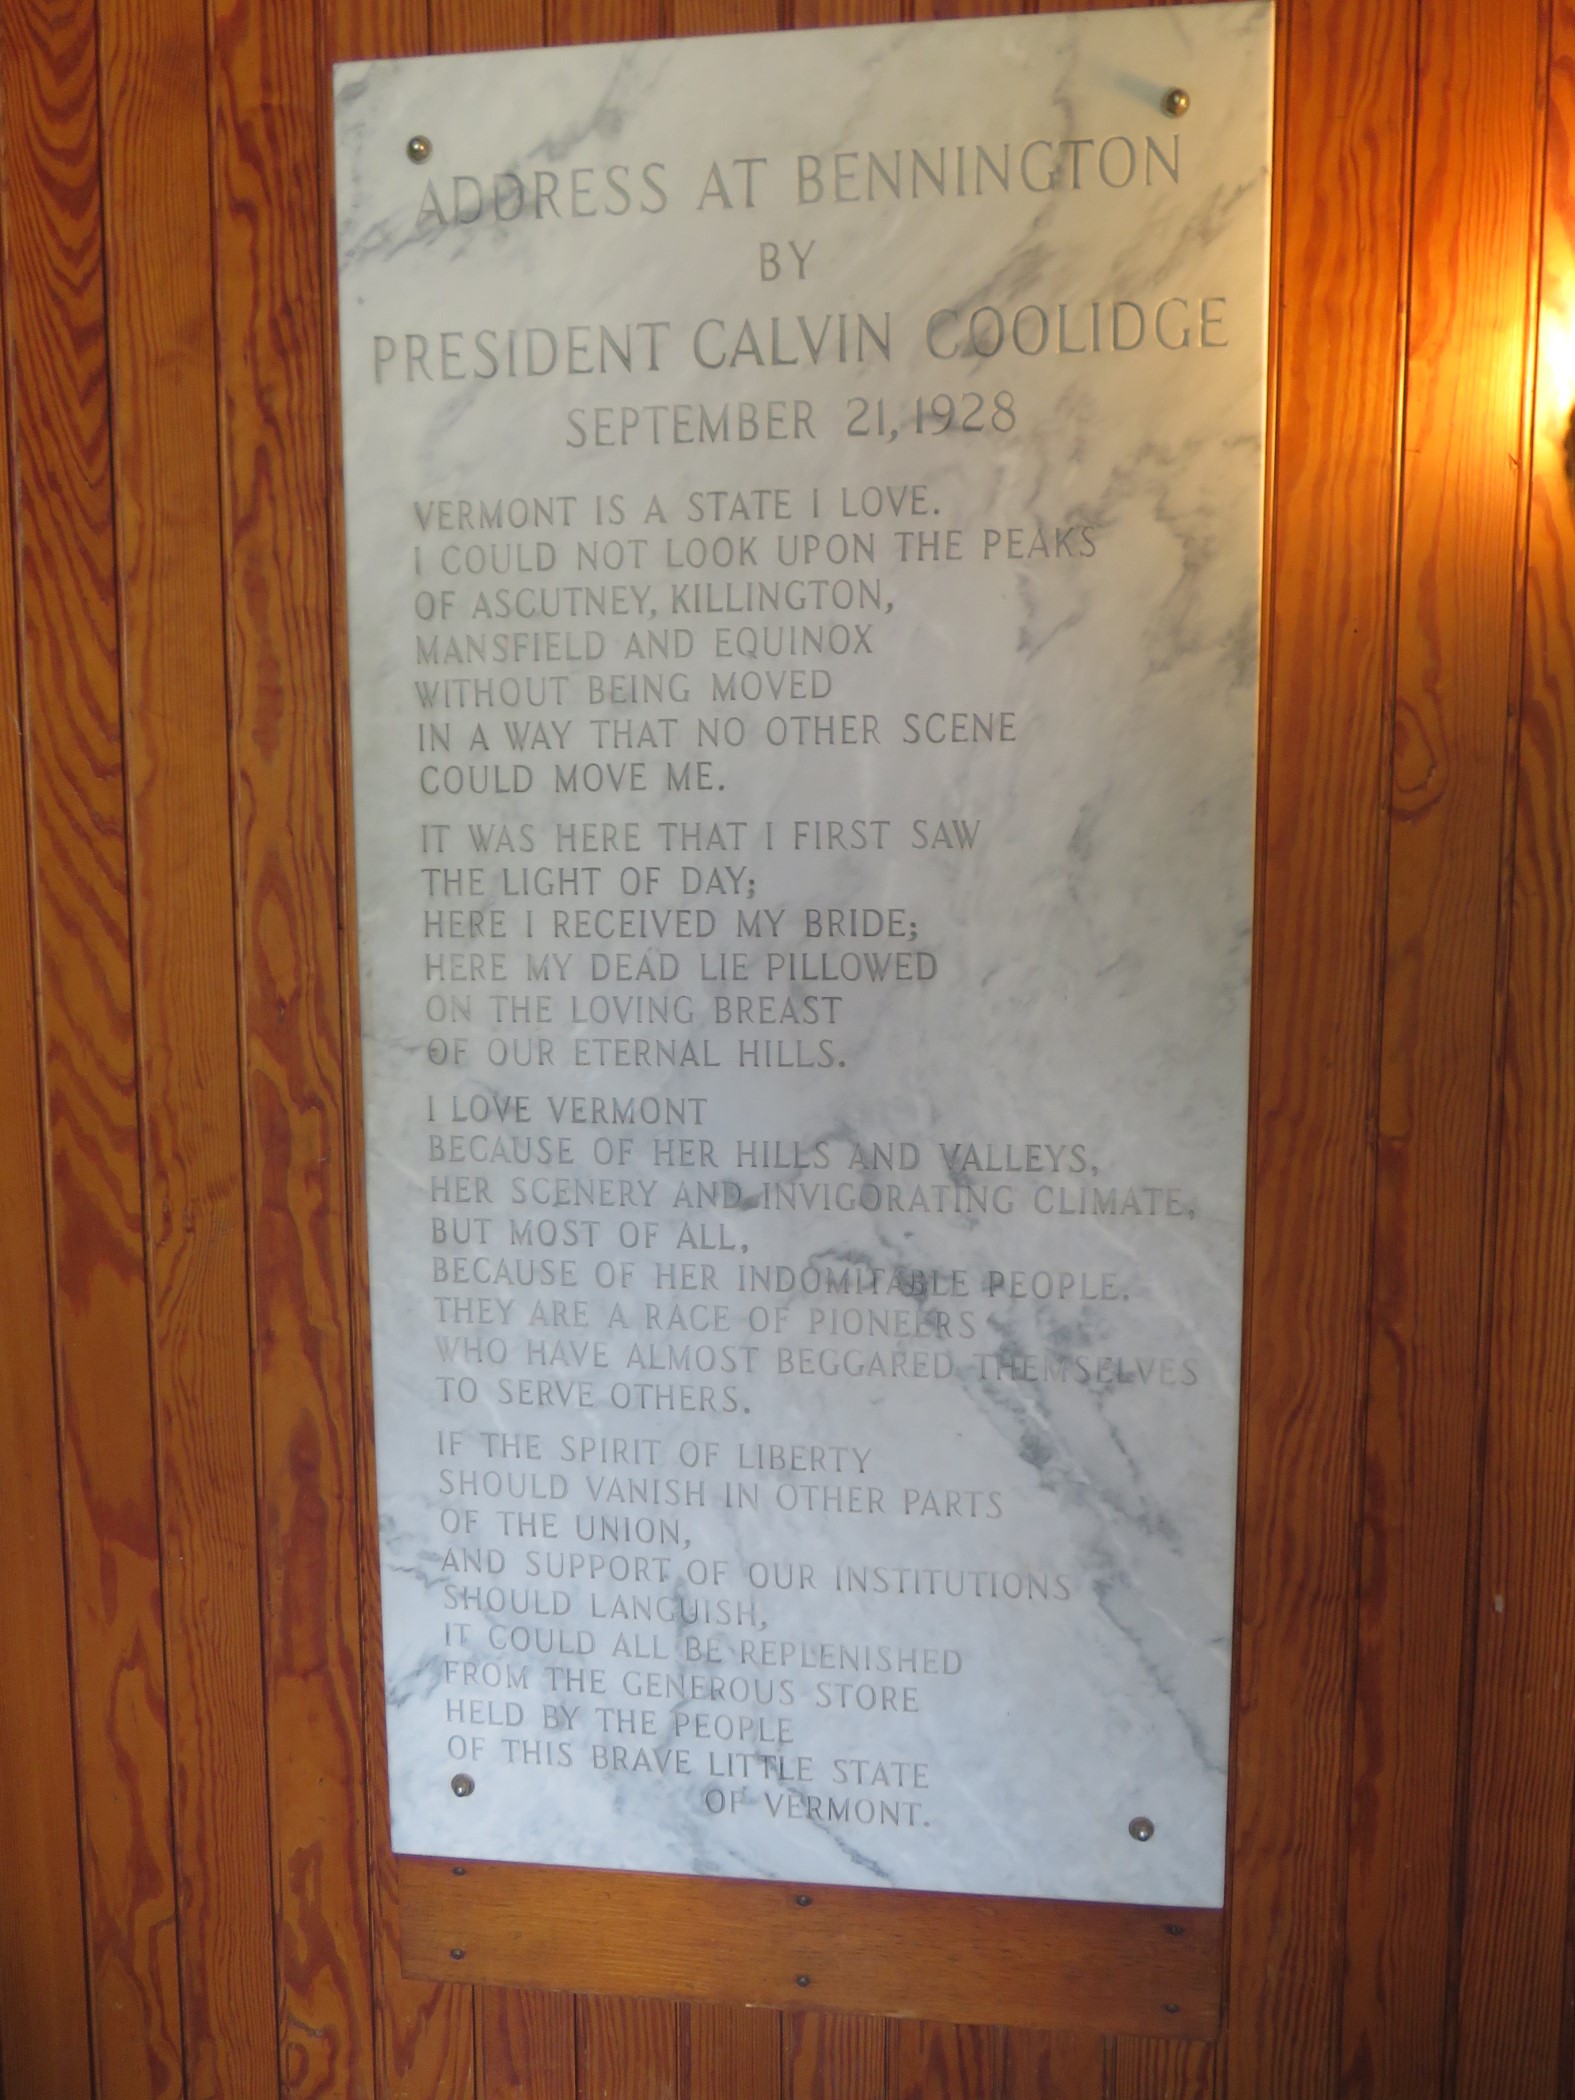 ADDRESS AT BENNINGTON
BY
PRESIDENT CALVIN COOLIDGE
SEPTEMBER 21, 1928
VERMONT IS A STATE I LOVE.
I COULD NOT LOOK UPON THE PEAKS
OF ASCUTNEY, KILLINGTON,
MANSFIELD AND EQUINOX
WITHOUT BEING MOVED
IN A WAY THAT NO OTHER SCENE
COULD MOVE ME.
IT WAS HERE THAT I FIRST SAW
THE LIGHT OF DAY;
HERE I RECEIVED MY BRIDE;
HERE MY DEAD LIE PILLOWED
ON THE LOVING BREAST
OF OUR ETERNAL HILLS.
I LOVE VERMONT
BECAUSE OF HER HILLS AND VALLEYS,
HER SCENERY AND INVIGORATING CLIMATE,
BUT MOST OF ALL,
BECAUSE OF HER INDOMITABLE PEOPLE.
THEY ARE A RACE OF PIONEERS
WHO HAVE ALMOST BEGGARED THEMSELVES
TO SERVE OTHERS.
IF THE SPIRIT OF LIBERTY
SHOULD VANISH IN OTHER PARTS
OF THE UNION,
AND SUPPORT OF OUR INSTITUTIONS
SHOULD LANGUISH,
IT COULD ALL BE REPLENISHED
FROM THE GENEROUS STORE
HELD BY THE PEOPLE
OF THIS BRAVE LITTLE STATE
OF VERMONT.